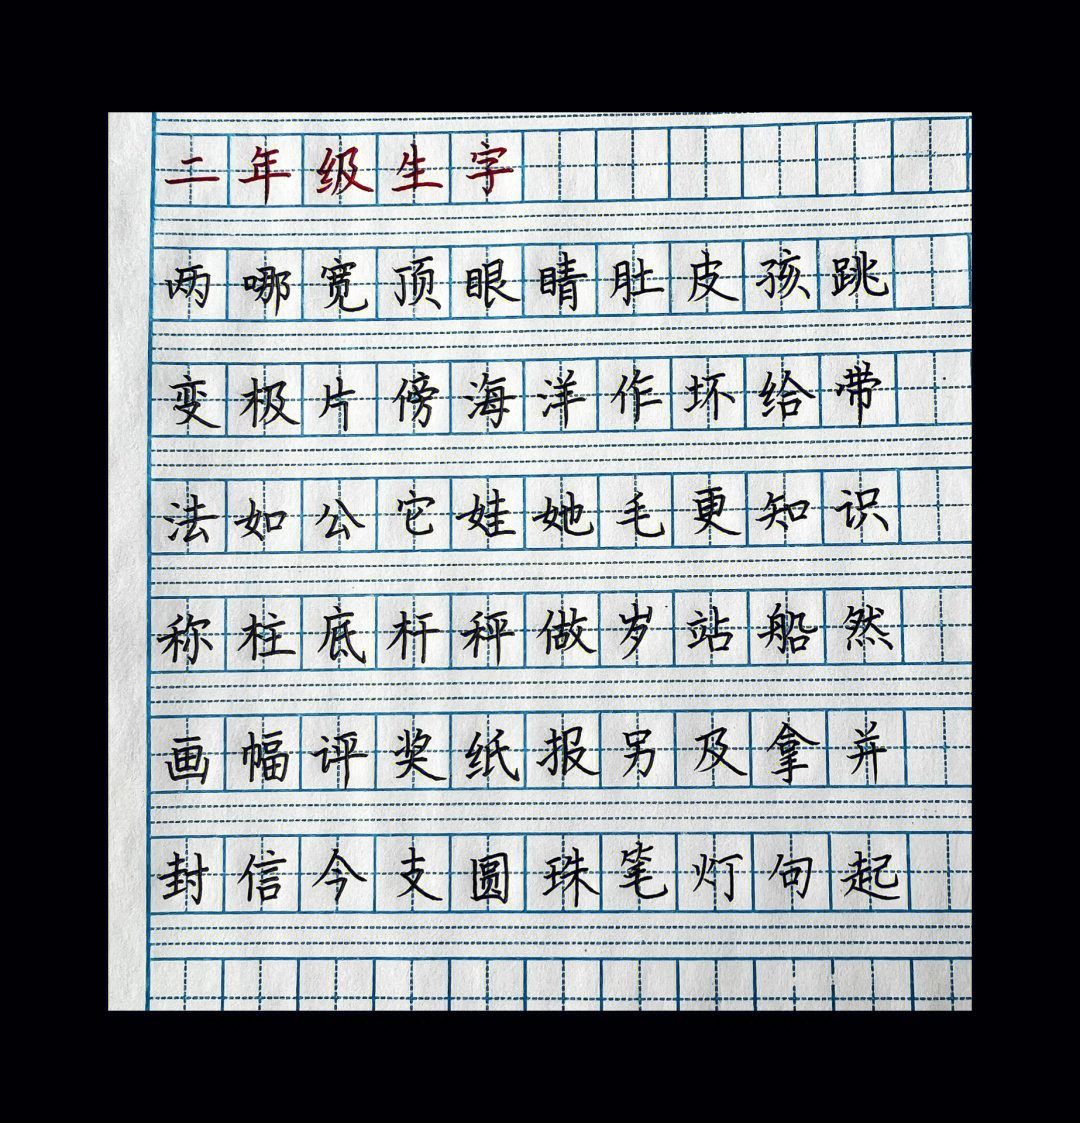 二年级生字
两哪宽顶眼睛肚皮孩跳
变极片傍海洋作坏给带
法如公它娃她毛更知识
称柱底杆秤做岁站船然
画幅评奖纸报另及拿并
封信今支圆珠笔灯句起